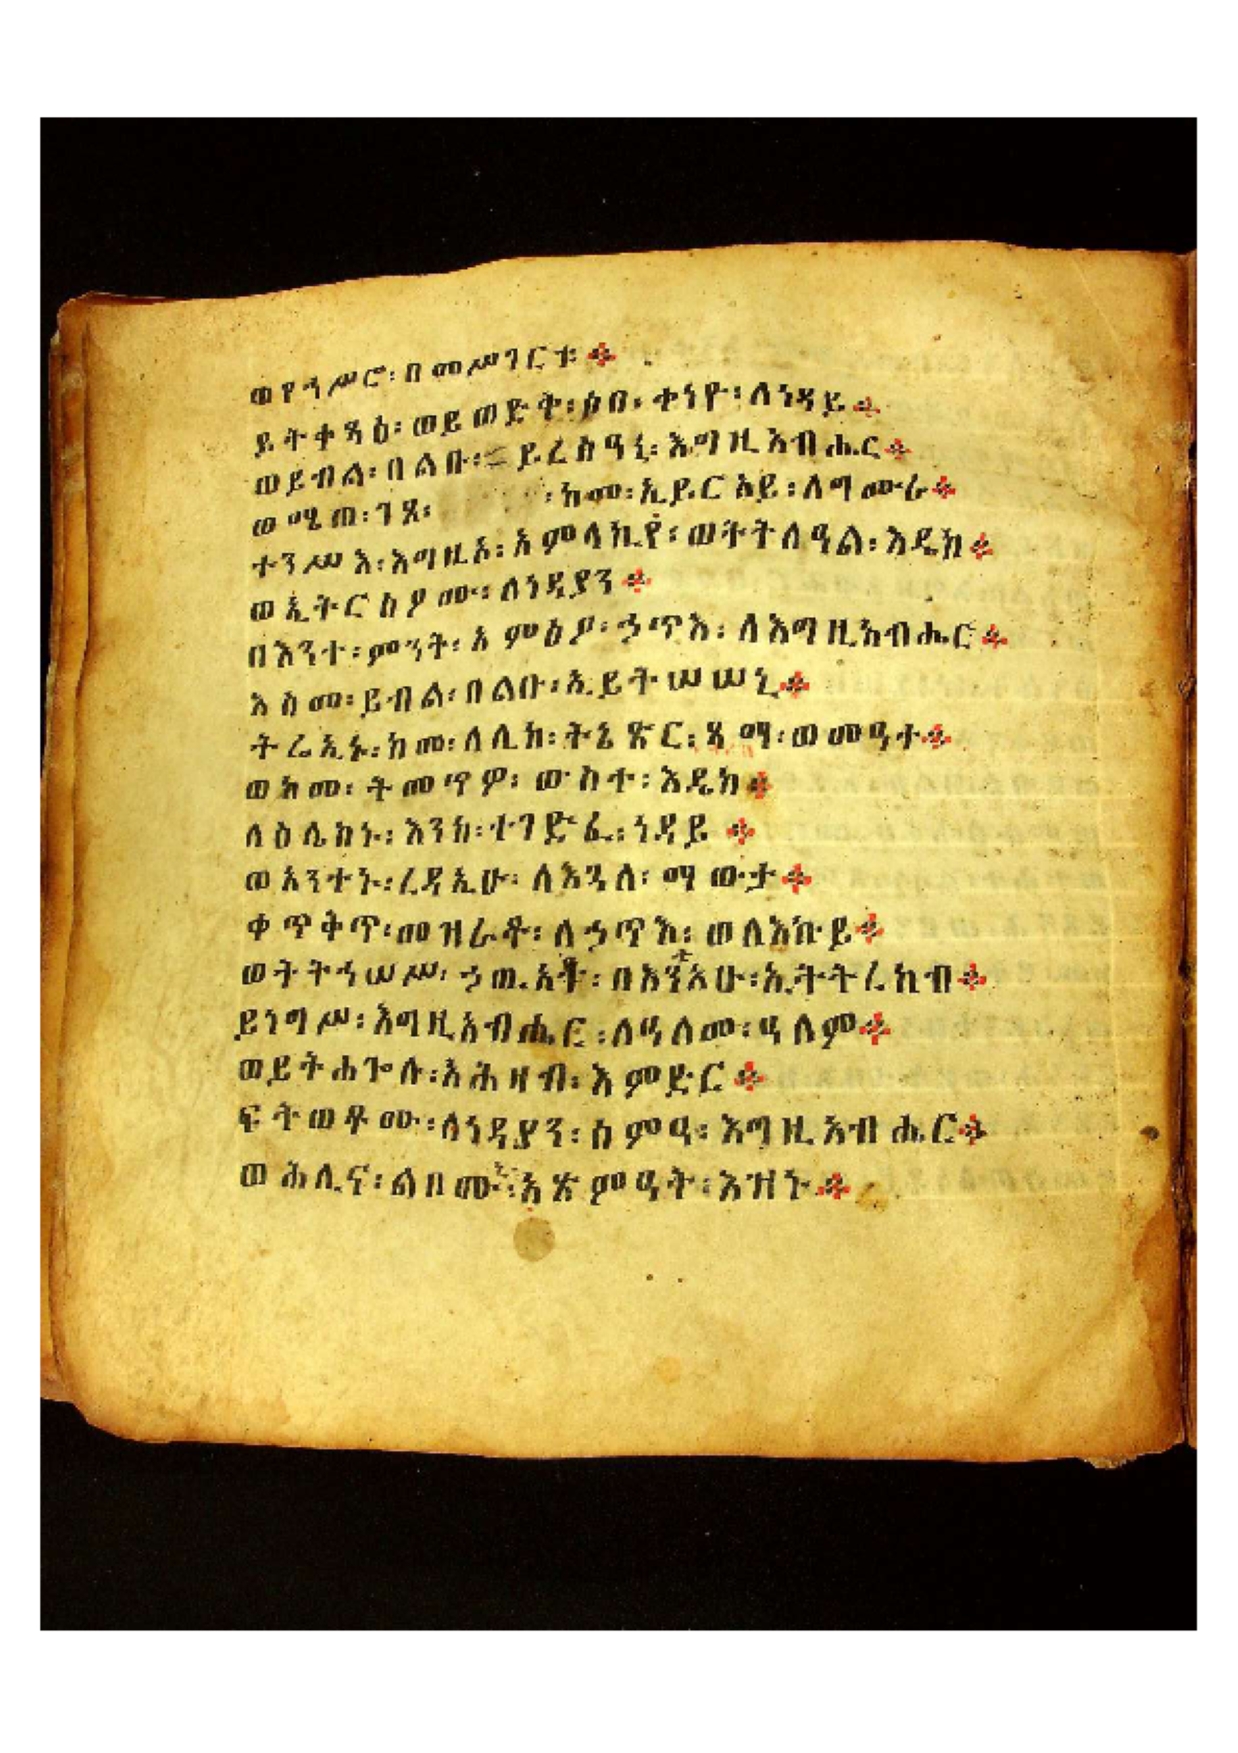 ወየኀሥሮ፡ በመሥገርቱ፡ ፨
ይትቀጻዕ፡ ወይወድት፡ ሶበ፡ ቀነዮ፡ ለነዳይ፨
ወይብል፡ በልቡ፡ ይረስዓኒ፡ እግዚአብሔር፨
ወሜጠ፡ ገጾ፡ ፡ ከመ፡ ኢይርአይ፡ ለግሙራ፨
ተንሥእ፡ እግዚኦ፡ አምላኪየ፡ ወትትለዓል፡ እዴከ፨
ወኢትርስዖሙ፡ ለነዳያን፨
በእንተ፡ ምንት፡ አምዕዖ፡ ኃጥእ፡ ለእግዚአብሔር፨
እስመ፡ ይብል፡ በልቡ፡ ኢይትሠሠኒ፨
ትሬኢኑ፡ ከመ፡ ለሊከ፡ ትኔጽር፡ ጻማ፡ ወመዓተ፨
ወከመ፡ ትመጥዎ፡ ውስተ፡ እዴከ፨
ላዕሌከኑ፡ እንከ፡ ተገድፈ፡ ነዳይ፨
ወአንተኑ፡ ረዳኢሁ፡ ለእጓለ፡ ማውታ፨
ቀጥቅጥ፡ መዝራዕቶ፡ ለኃጥእ፡ ወለእኩይ፨
ወትትኀሠሥ፡ ኃጢአቱ፡ በእንቲአሁ፡ ኢትትረከብ፨
ይነግሥ፡ እግዚአብሔር፡ ለዓለመ፡ ዓለም፨
ወይትሐጐሉ፡ አሕዛብ፡ እምድር፨
ፍትወቶሙ፡ ለነዳያን፡ ስምዓ፡ እግዚአብሔር፨
ወሕሊና፡ ልቦሙ፡ አጽምዓት፡ እዝኑ፨